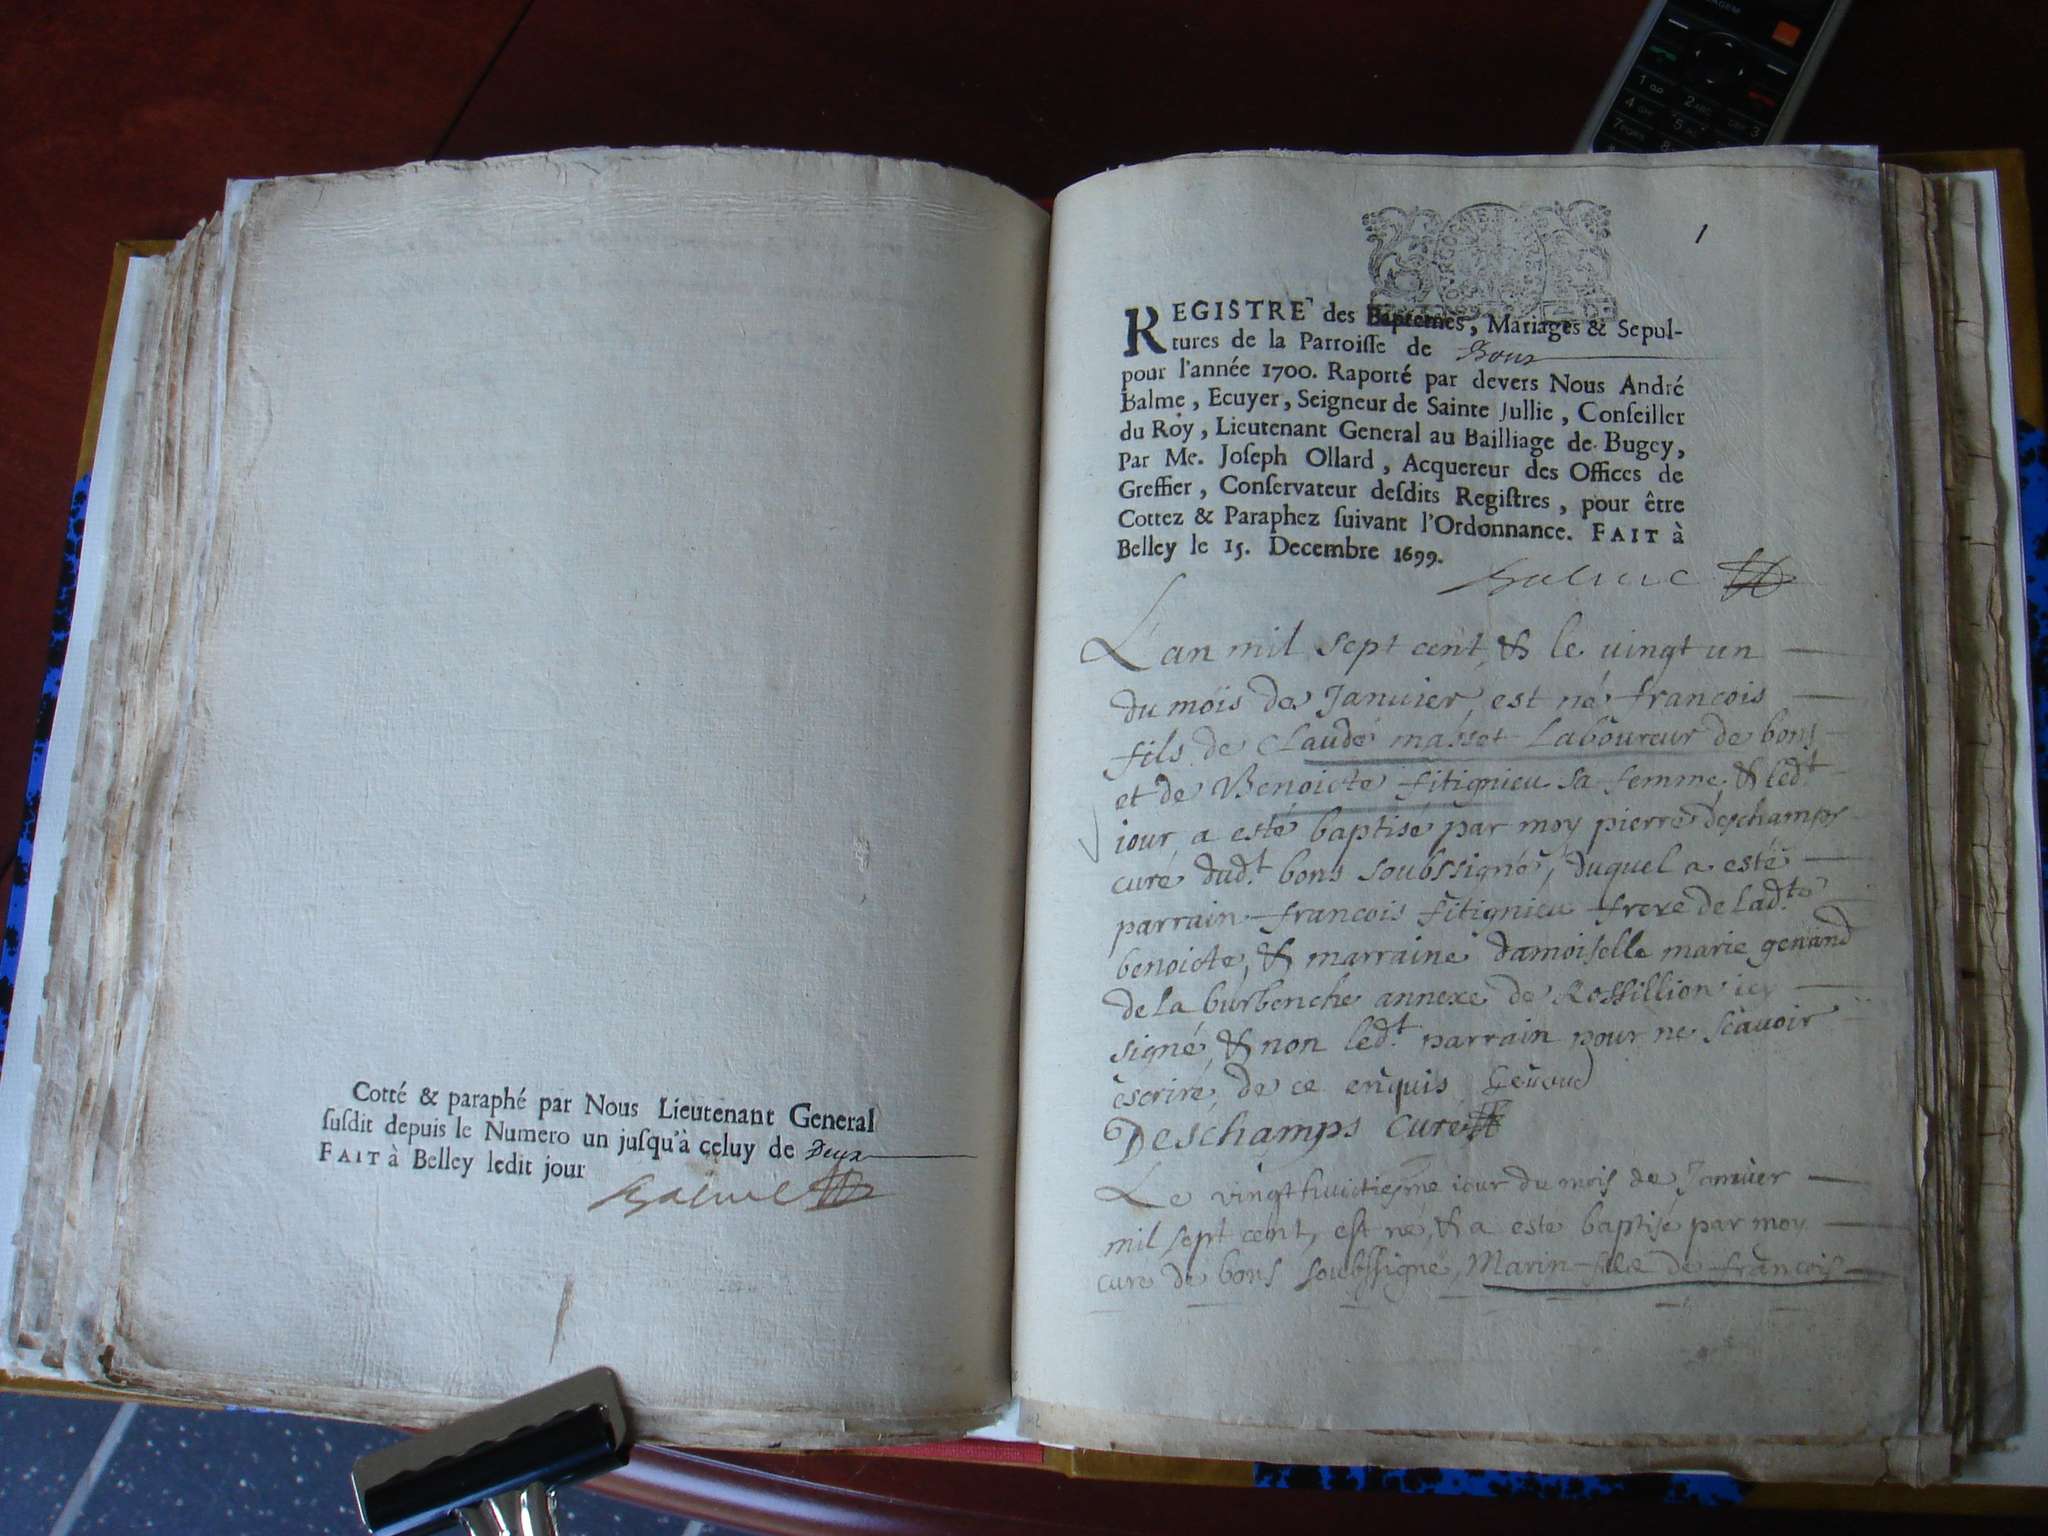 Cotté & paraphé par Nous Lieutenant General
susdit depuis le Numero un jusqu'à celuy de Deux
FAIT à Belley ledit jour
Balme
1
REGISTRE des Baptemes, Mariages & Sepul-
tures de la Parroisse de Bons
pour l'année 1700. Raporté par devers Nous André
Balme, Ecuyer, Seigneur de Sainte Jullie, Conseiller
du Roy, Lieutenant General au Bailliage de Bugey,
Par Me. Joseph Ollard, Acquereur des Offices de
Greffier, Conservateur desdits Registres, pour être
Cottez & Paraphez suivant l'Ordonnance. FAIT à
Belley le 15. Decembre 1699.
Balme
Lan mil sept cent, & le vingt un
du mois de Janvier est né francois
fils de Claude masset Laboureur de bons
et de Benoicte fitignieu sa femme, & led.t
jour a esté baptisé par moy pierre deschamps
curé dud.t bons soubssigné, duquel a esté
parrain francois fitignieu frere de lad.te
benoicte, & marraine damoiselle marie
de la burbenche annexe de Rossillion icy
signé, & non led.t parrain pour ne scavoir
escrire, de ce enquis
Deschamps curé
Le vingt huictiesme iour du mois de Janvier
mil sept cent, est né, & a este baptisé par moy
curé de bons soubssigné, Marin fils de francois
1
2 ABC
DEF 3
4 GHI
5
7 PQRS
8